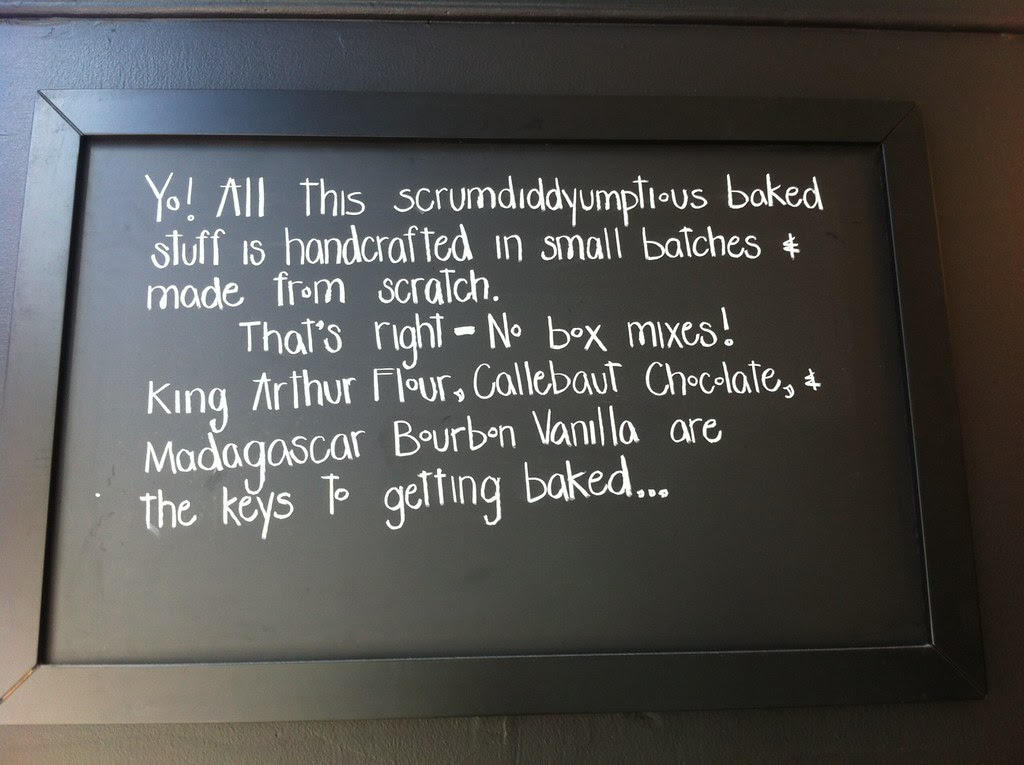 Yo! All this scrumdiddyumptious baked
stuff is handcrafted in small batches &
made from scratch.
That's right - No box mixes!
King Arthur Flour, Callebaut Chocolate, &
Madagascar Bourbon Vanilla are
the keys to getting baked...